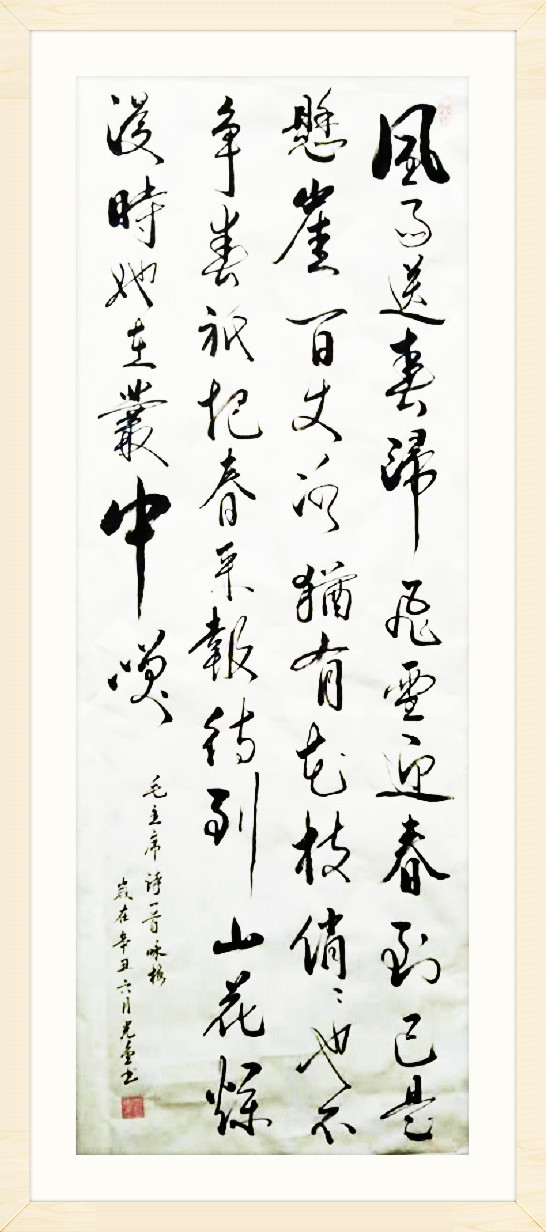 風雨送春歸飛雪迎春到已是
懸崖百丈冰猶有花枝俏〻也不
争春祇把春来報待到山花爛
漫時她在叢中咲
毛主席詩一首咏梅
歲在辛丑六月光書